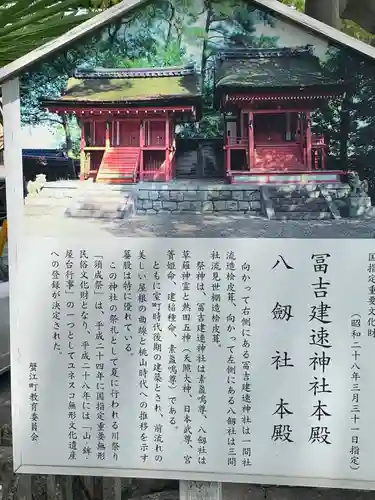 国指定重要文化財
（昭和二十八年三月三十一日指定）
冨吉建速神社本殿
八劔社本殿
向かって右側にある冨吉建速神社は一間社
流造桧皮葺、向かって左側にある八劔社は三間
社流見世棚造桧皮葺。
祭神は、冨吉建速神社は素盞嗚尊、八劔社は
草薙神霊と熱田五神（天照大神、日本武尊、宮
簀姫命、建稲種命、素盞嗚尊）である。
ともに室町時代後期の建立とされ、前流れの
美しい屋根の曲線と桃山時代への推移を示す
蟇股は特に優れている。
この神社の祭礼として夏に行われる川祭り
「須成祭」は、平成二十四年に国指定重要無形
民俗文化財となり、平成二十八年には「山・鉾・
屋台行事」の一つとしてユネスコ無形文化遺産
への登録が決定された。
蟹江町教育委員会